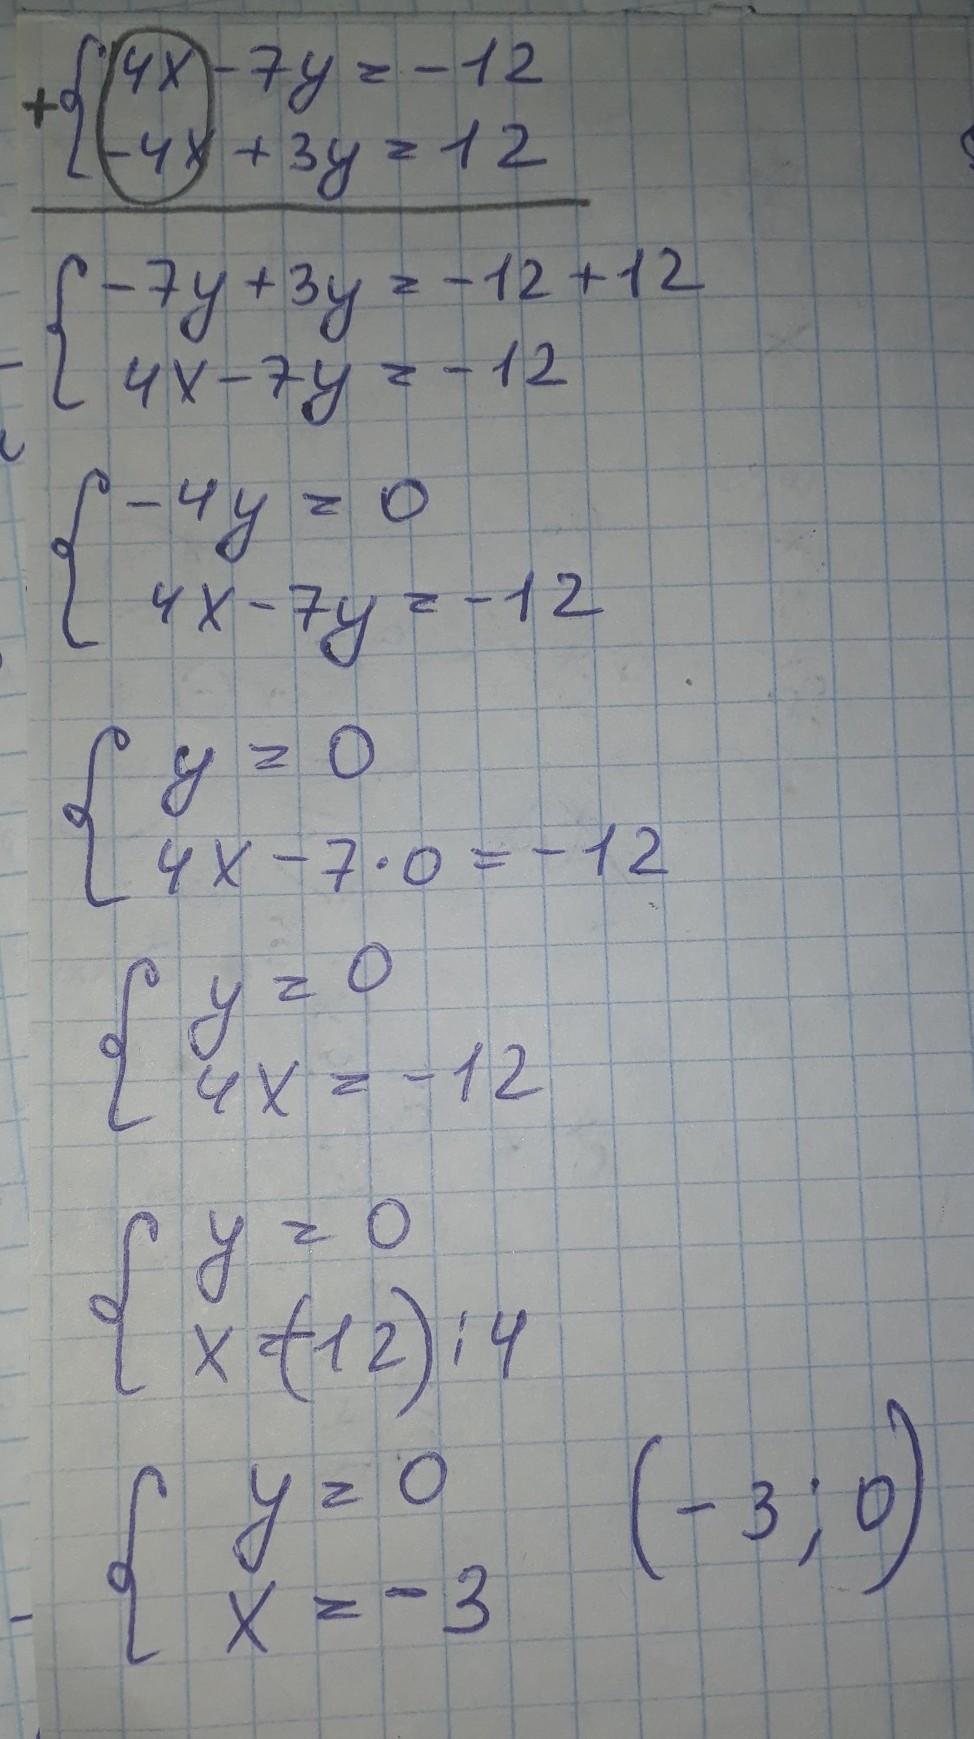 + { 4x - 7y = -12
-4x + 3y = 12
{ -7y + 3y = -12 + 12
4x - 7y = -12
{ -4y = 0
4x - 7y = -12
{ y = 0
4x - 7 · 0 = -12
{ y = 0
4x = -12
{ y = 0
x = (-12) : 4
{ y = 0
x = -3
(-3; 0)